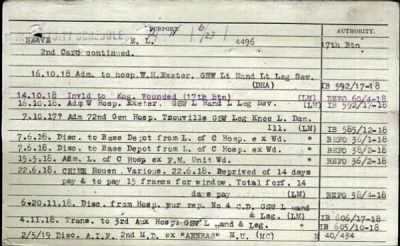 PURPORT
AUTHORITY.
NEAVE R. L. 4496
17th Btn
2nd Card continued.
16.10.18 Adm. to hosp. W.H. Exeter. GSW Lt Hand Lt Leg Sev.
(DHA) IB 592/17-18
14.10.18 Invld to Eng. Wounded (17th Btn) (LM) BEFO 60/4-18
16.10.18. Adm W Hosp. Exeter. GSW L Hand L Leg Sev. (LM) IB 592/17-18
7.10.17? Adm 72nd Gen Hosp. Trouville GSW Leg Knee L. Dan.
Ill. (LM) IB 585/12-18
7.6.18. Disc. to Base Depot from L. of C. Hosp ex Wd. BEFO 36/1-18
7.6.18. Disc. to Base Depot from L. of C. Hosp ex Wd. BEFO 36/2-18
15.5.18 Adm. L. of C Hosp ex F.M. Unit Wd. BEFO 36/2-18
22.6.18. CRIME Rouen. Various. 22.6.18. Deprived of 14 days
pay & to pay 15 francs for window. Total forf. 14
days pay (LM) BEFO 38/4-18
6.20.11.18. Disc. from Hosp. for rep. No 4 C.D. GSW L
and & Leg. (LM) IB 606/17-18
4.11.18. Trans. to 3rd Aux Hosp. GSW L and & Leg. (LM) IB 605/10-18
2/5/19 Disc. A.I.F. 2nd M.D. ex M.U. (MC) 40/434